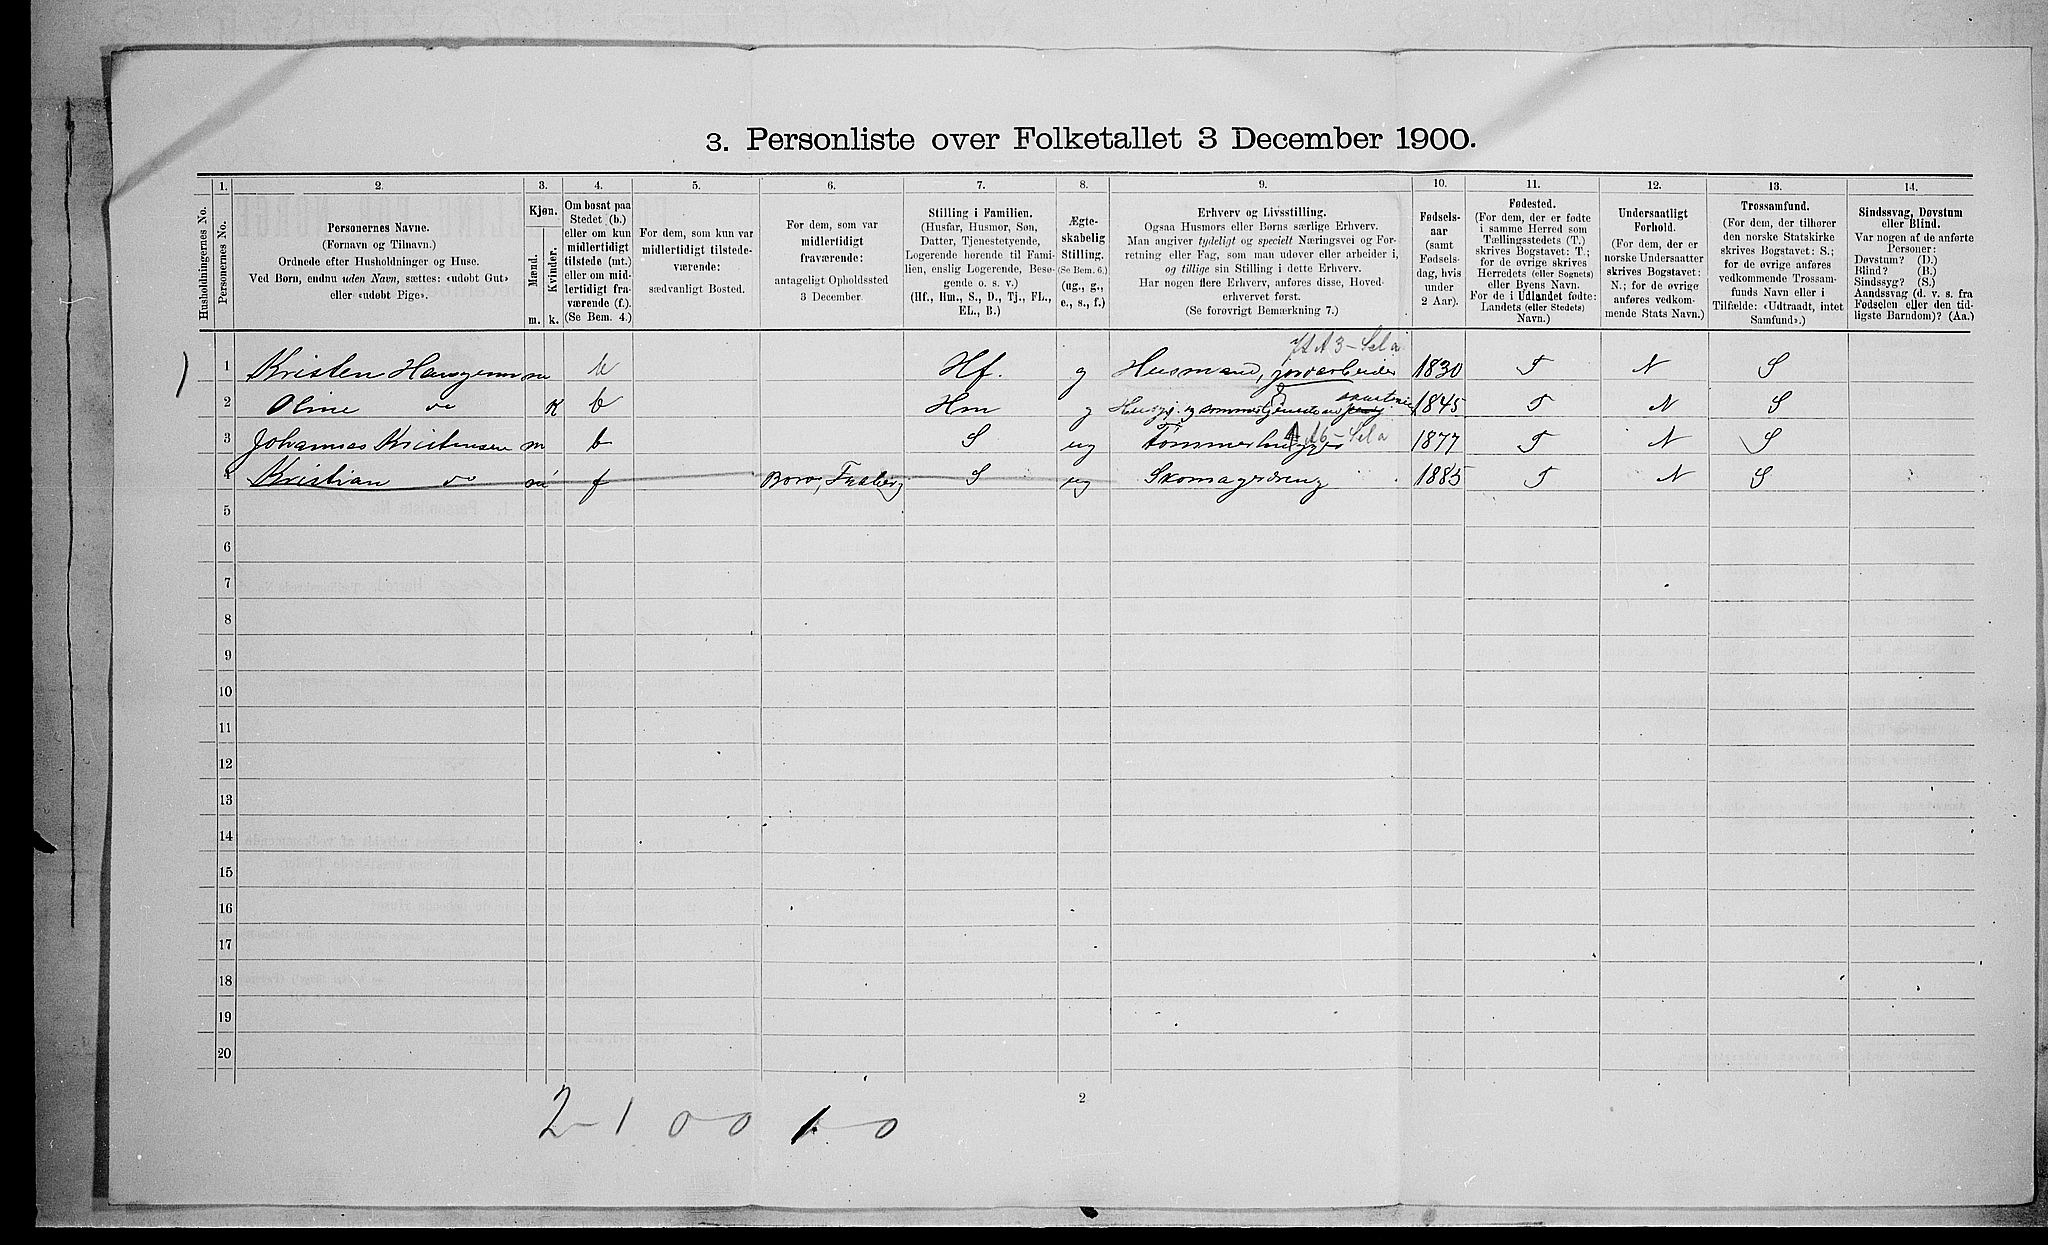 3. Personliste over Folketallet 3 December 1900.
1. 2. 3. 4. 5. 6. 7. 8. 9. 10. 11. 12. 13. 14.
Husholdningernes No.
Personernes No.
Personernes Navne.
(Fornavn og Tilnavn.)
Ordnede efter Husholdninger og Huse.
Ved Børn, endnu uden Navn, sættes: «udøbt Gut»
eller «udøbt Pige».
Kjøn.
Mænd.
Kvinder.
m. k.
Om bosat paa
Stedet (b.)
eller om kun
midlertidigt
tilstede (mt.)
eller om mid-
lertidigt fra-
værende (f.)
(Se Bem. 4.)
For dem, som kun var
midlertidigt tilstede-
værende:
sædvanligt Bosted.
For dem, som var
midlertidigt
fraværende:
antageligt Opholdssted
3 December.
Stilling i Familien.
(Husfar, Husmor, Søn,
Datter, Tjenestetyende,
Logerende hørende til Fami-
lien, enslig Logerende, Besø-
gende o. s. v.)
(Hf., Hm., S., D., Tj., FL.,
EL., B.)
Ægte-
skabelig
Stilling.
(Se Bem. 6.)
(ug., g.,
e., s., f.)
Erhverv og Livsstilling.
Ogsaa Husmors eller Børns særlige Erhverv.
Man angiver tydeligt og specielt Næringsvei og For-
retning eller Fag, som man udøver eller arbeider i,
og tillige sin Stilling i dette Erhverv.
Har nogen flere Erhverv, anføres disse, Hoved-
erhvervet først.
(Se forøvrigt Bemærkning 7.)
Fødsels-
aar
(samt
Fødsels-
dag, hvis
under
2 Aar).
Fødested.
(For dem, der er fødte
i samme Herred som
Tællingsstedets (T.)
skrives Bogstavet: T.;
for de øvrige skrives
Herredets (eller Sognets)
eller Byens Navn.
For de i Udlandet fødte:
Landets (eller Stedets)
Navn.)
Undersaatligt
Forhold.
(For dem, der er
norske Undersaatter
skrives Bogstavet:
N.; for de øvrige
anføres vedkom-
mende Stats Navn.)
Trossamfund.
(For dem, der tilhører
den norske Statskirke
skrives Bogstavet: S.;
for de øvrige anføres
vedkommende Trossam-
funds Navn eller i
Tilfælde: «Udtraadt, intet
Samfund».)
Sindssvag, Døvstum
eller Blind.
Var nogen af de anførte
Personer:
Døvstum? (D.)
Blind? (B.)
Sindssyg? (S.)
Aandssvag (d. v. s. fra
Fødselen eller den tid-
ligste Barndom)? (Aa.)
1 Kristen Hansen m b Hf. g Husmand, jordarbeider 1830 T N S
2 Oline do k b Hm g 1845 T N S
3 Johannes Kristensen m b S ug Tømmerhugger 1877 T N S
4 Kristian do m f Faaberg S ug Skomagerdreng 1885 T N S
5
6
7
8
9
10
11
12
13
14
15
16
17
18
19
20
2
2-1 0 0 1 0